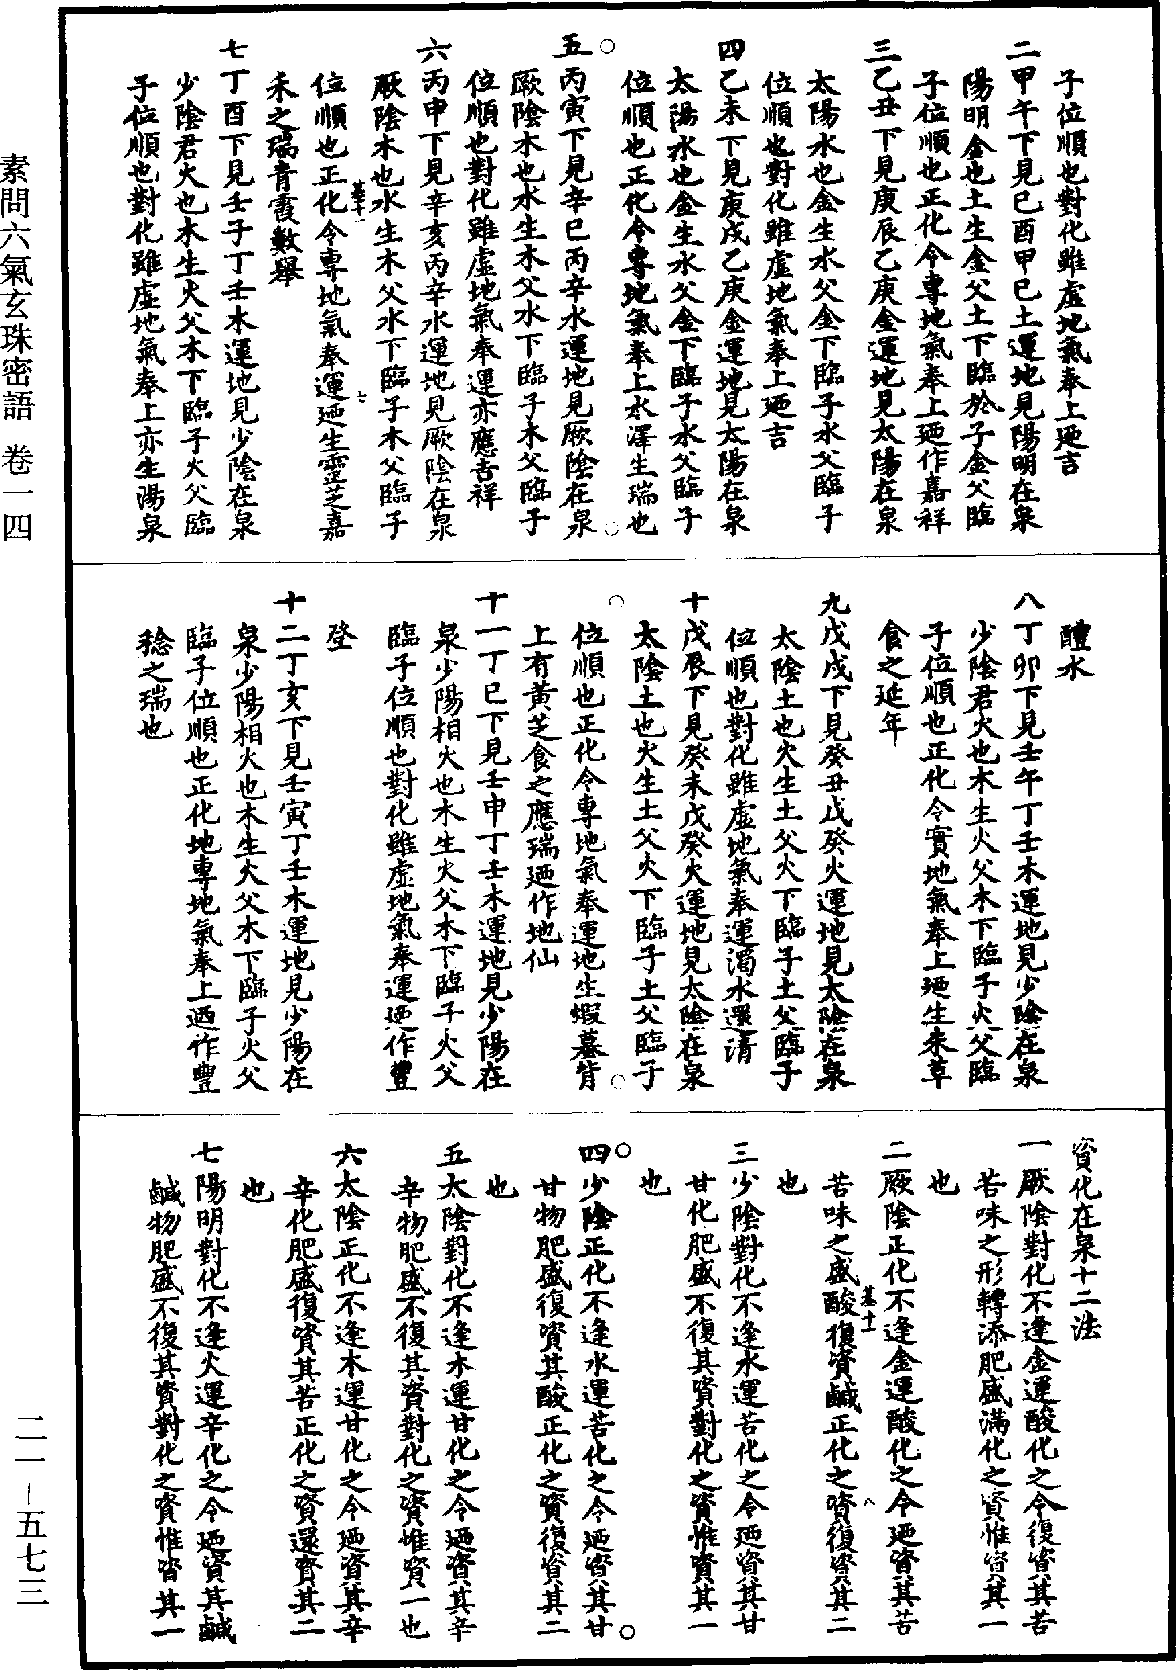 子位順也對化雖虛地氣奉上廼吉
二甲午下見己酉甲己土運地見陽明在泉
陽明金也土生金父土下臨於子金父臨
子位順也正化令專地氣奉上廼作嘉祥
三乙丑下見庚辰乙庚金運地見太陽在泉
太陽水也金生水父金下臨子水父臨子
位順也對化雖虛地氣奉上廼吉
四乙未下見庚戌乙庚金運地見太陽在泉
太陽水也金生水父金下臨子水父臨子
位順也正化令專地氣奉上水澤生瑞也
五丙寅下見辛巳丙辛水運地見厥陰在泉
厥陰木也水生木父水下臨子木父臨子
位順也對化雖虛地氣奉運亦應吉祥
六丙申下見辛亥丙辛水運地見厥陰在泉
厥陰木也水生木父水下臨子木父臨子
位順也正化令專地氣奉運廼生靈芝嘉
禾之瑞青霞數舉
七丁酉下見壬子丁壬木運地見少陰在泉
少陰君火也木生火父木下臨子火父臨
子位順也對化雖虛地氣奉上亦生湯泉
醴水
八丁卯下見壬午丁壬木運地見少陰在泉
少陰君火也木生火父木下臨子火父臨
子位順也正化令實地氣奉上廼生朱草
食之延年
九戊戌下見癸丑戊癸火運地見太陰在泉
太陰土也火生土父火下臨子土父臨子
位順也對化雖虛地氣奉運濁水還清
十戊辰下見癸未戊癸火運地見太陰在泉
太陰土也火生土父火下臨子土父臨子
位順也正化令專地氣奉運地生蝦蟇背
上有黃芝食之應瑞廼作地仙
十一丁巳下見壬申丁壬木運地見少陽在
泉少陽相火也木生火父木下臨子火父
臨子位順也對化雖虛地氣奉運廼作豐
登
十二丁亥下見壬寅丁壬木運地見少陽在
泉少陽相火也木生火父木下臨子火父
臨子位順也正化地專地氣奉上廼作豐
稔之瑞也
資化在泉十二法
一厥陰對化不逢金運酸化之令復資其苦
苦味之形轉添肥盛滿化之資惟資其一
也
二厥陰正化不逢金運酸化之令廼資其苦
苦味之盛酸復資鹹正化之資復資其二
也
三少陰對化不逢水運苦化之令廼資其甘
甘化肥盛不復其資對化之資惟資其一
也
四少陰正化不逢水運苦化之令廼資其甘
甘物肥盛復資其酸正化之資復資其二
也
五太陰對化不逢木運甘化之令廼資其辛
辛物肥盛不復其資對化之資惟資一也
六太陰正化不逢木運甘化之令廼資其辛
辛化肥盛復資其苦正化之資還資其二
也
七陽明對化不逢火運辛化之令廼資其鹹
鹹物肥盛不復其資對化之資惟資其一
素問六氣玄珠密語 卷一四
二一－五七三